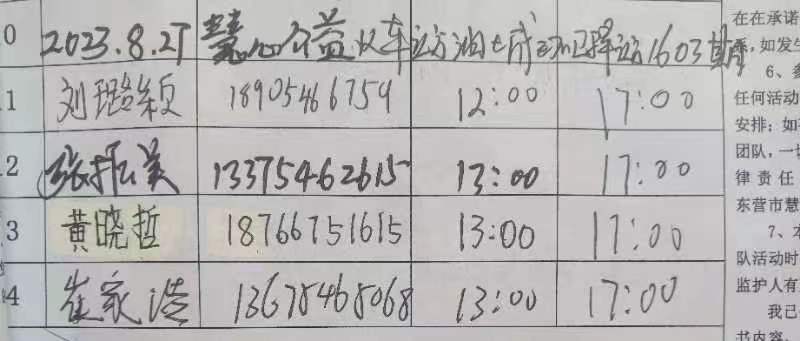 0 2023.8.27 慧心公益火车站方油七成功回驿站1603期
1 刘璐颖 18905466759 12:00 17:00
2 张振美 13375462615 13:00 17:00
3 黄晓哲 18766751615 13:00 17:00
4 崔家浩 13678468068 13:00 17:00
在在承诺
系,如发生
6、参
任何活动
安排;如
团队,一切
律责任
东营市慧
7、本
队活动时
监护人有
我已
书内容